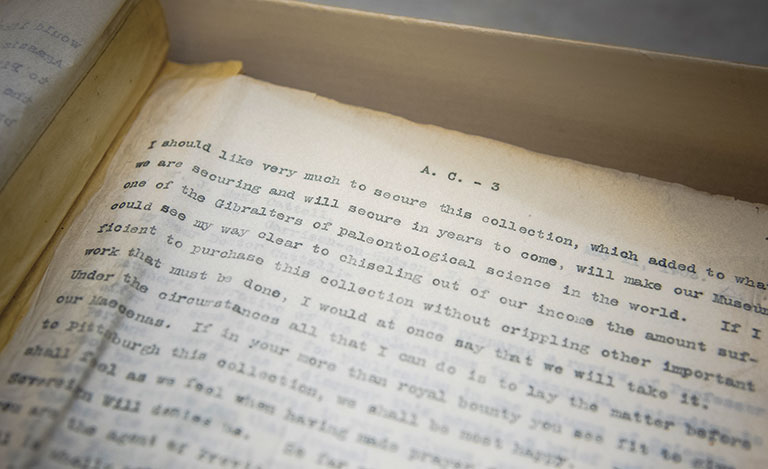 A. C. - 3
I should like very much to secure this collection, which added to what
we are securing and will secure in years to come, will make our Museum
one of the Gibralters of paleontological science in the world. If I
could see my way clear to chiseling out of our income the amount suf-
ficient to purchase this collection without crippling other important
work that must be done, I would at once say that we will take it.
Under the circumstances all that I can do is to lay the matter before
our Maecenas. If in your more than royal bounty you see fit to
to Pittsburgh this collection, we shall be most happy
shall feel as we feel when having made prayer
Sovereign Will denies us. So far
are the agent of